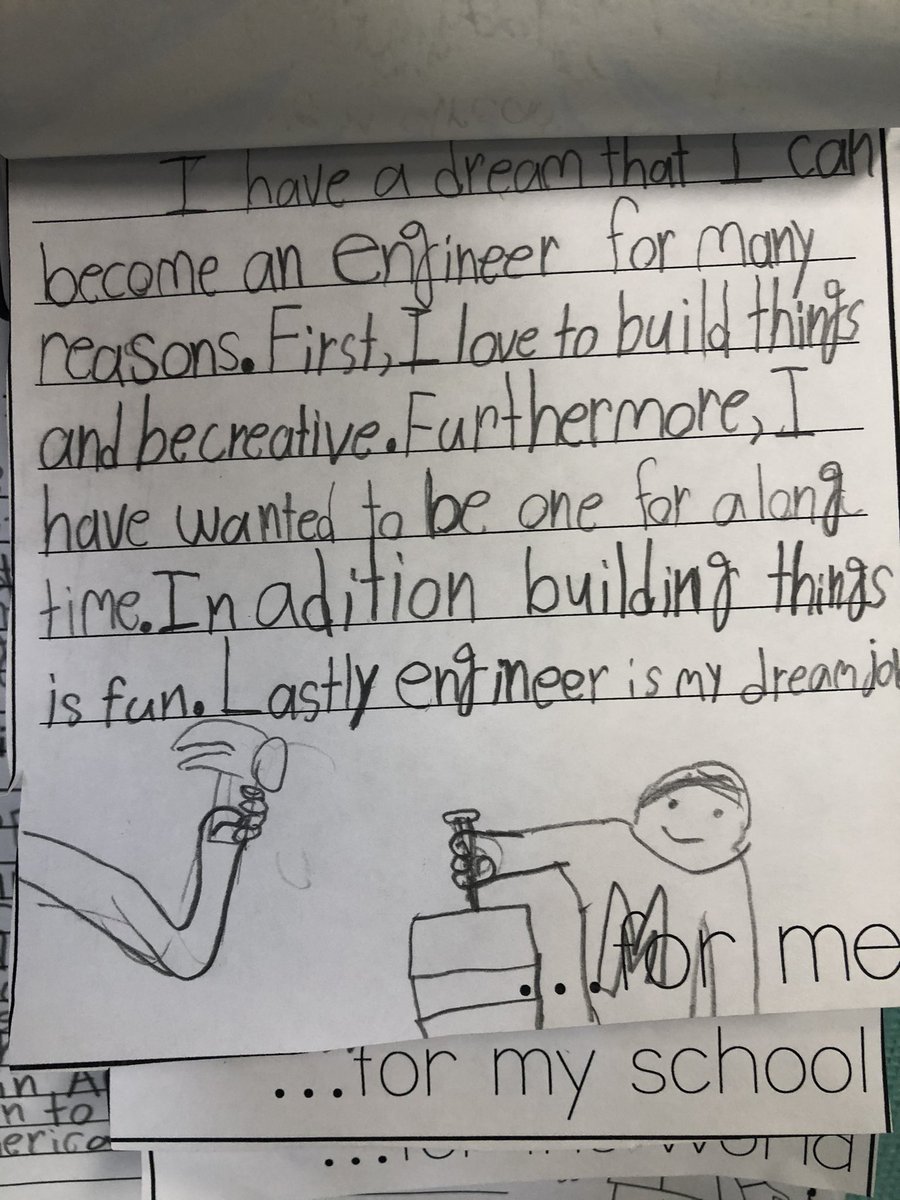 I have a dream that I can
become an engineer for many
reasons. First, I love to build things
and be creative. Furthermore, I
have wanted to be one for a long
time. In adition building things
is fun. Lastly engineer is my dream jo
...for me
...for my school
in A
n to
erica
...for the world